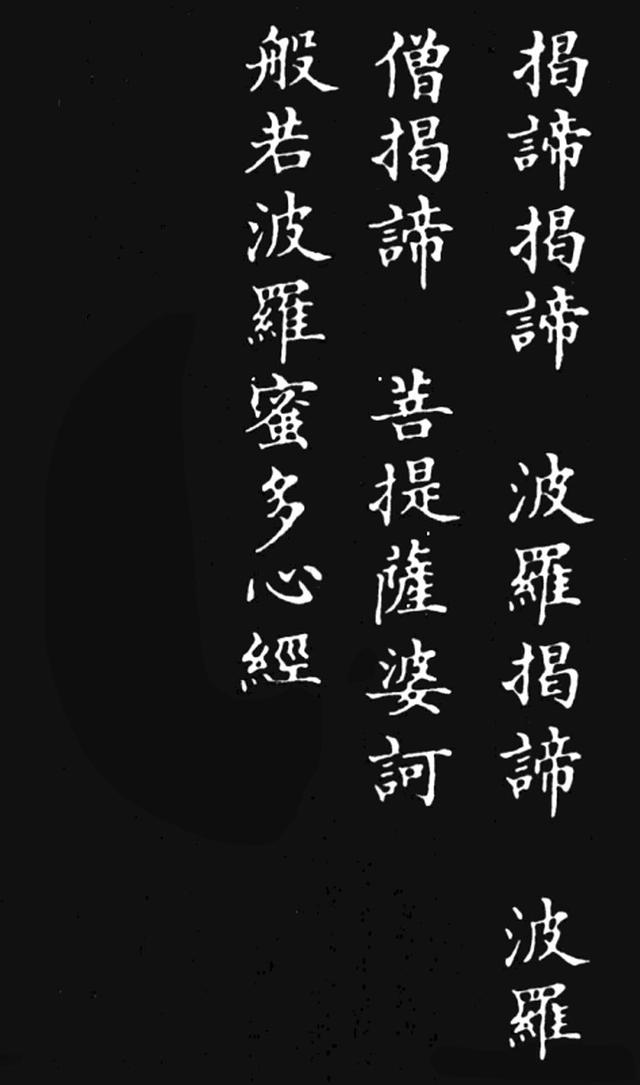 揭諦揭諦 波羅揭諦 波羅
僧揭諦 菩提薩婆訶
般若波羅蜜多心經